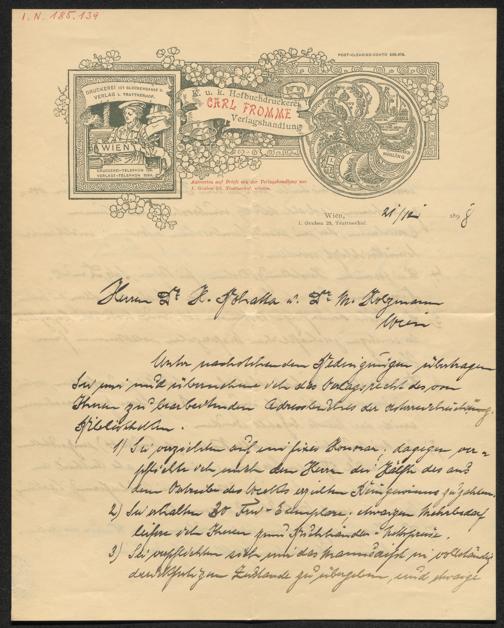 I. N. 185.134
POSTCLEARING-CONTO 808.410.
DRUCKEREI
VERLAG I. TRATTNERHOF.
WIEN
DRUCKEREI-TELEPHON
VERLAGS-TELEPHON
K. u. k. Hofbuchdruckerei
CARL FROMME
Verlagshandlung
Antworten auf Briefe der Verlagshandlung nur
I. Graben 29, Trattnerhof, erbeten.
Wien, 21/ 189 8
I. Graben 29, Trattnerhof.
Herren Dr H. Bohatta u. Dr M. Holzmann
Wien
Unter nachstehenden Bedingungen übertragen
Sie mir und übernehme ich das Verlagsrecht des von
Ihnen zu bearbeitenden Adressbuches der österreich.-ung.
Bibliotheken.
1) Sie verzichten auf ein fixes Honorar; dagegen ver=
pflichte ich mich den Herren die Hälfte des aus
dem Vertriebe des Werkes erzielten Reingewinns zu zahlen.
2) Sie erhalten 30 Frei-Exemplare; etwaigen Mehrbedarf
liefere ich Ihnen zum Buchhändler-Nettopreise.
3) Sie verpflichten sich mir das Manuscript in vollständig
druckfertigem Zustande zu übergeben, und etwaige